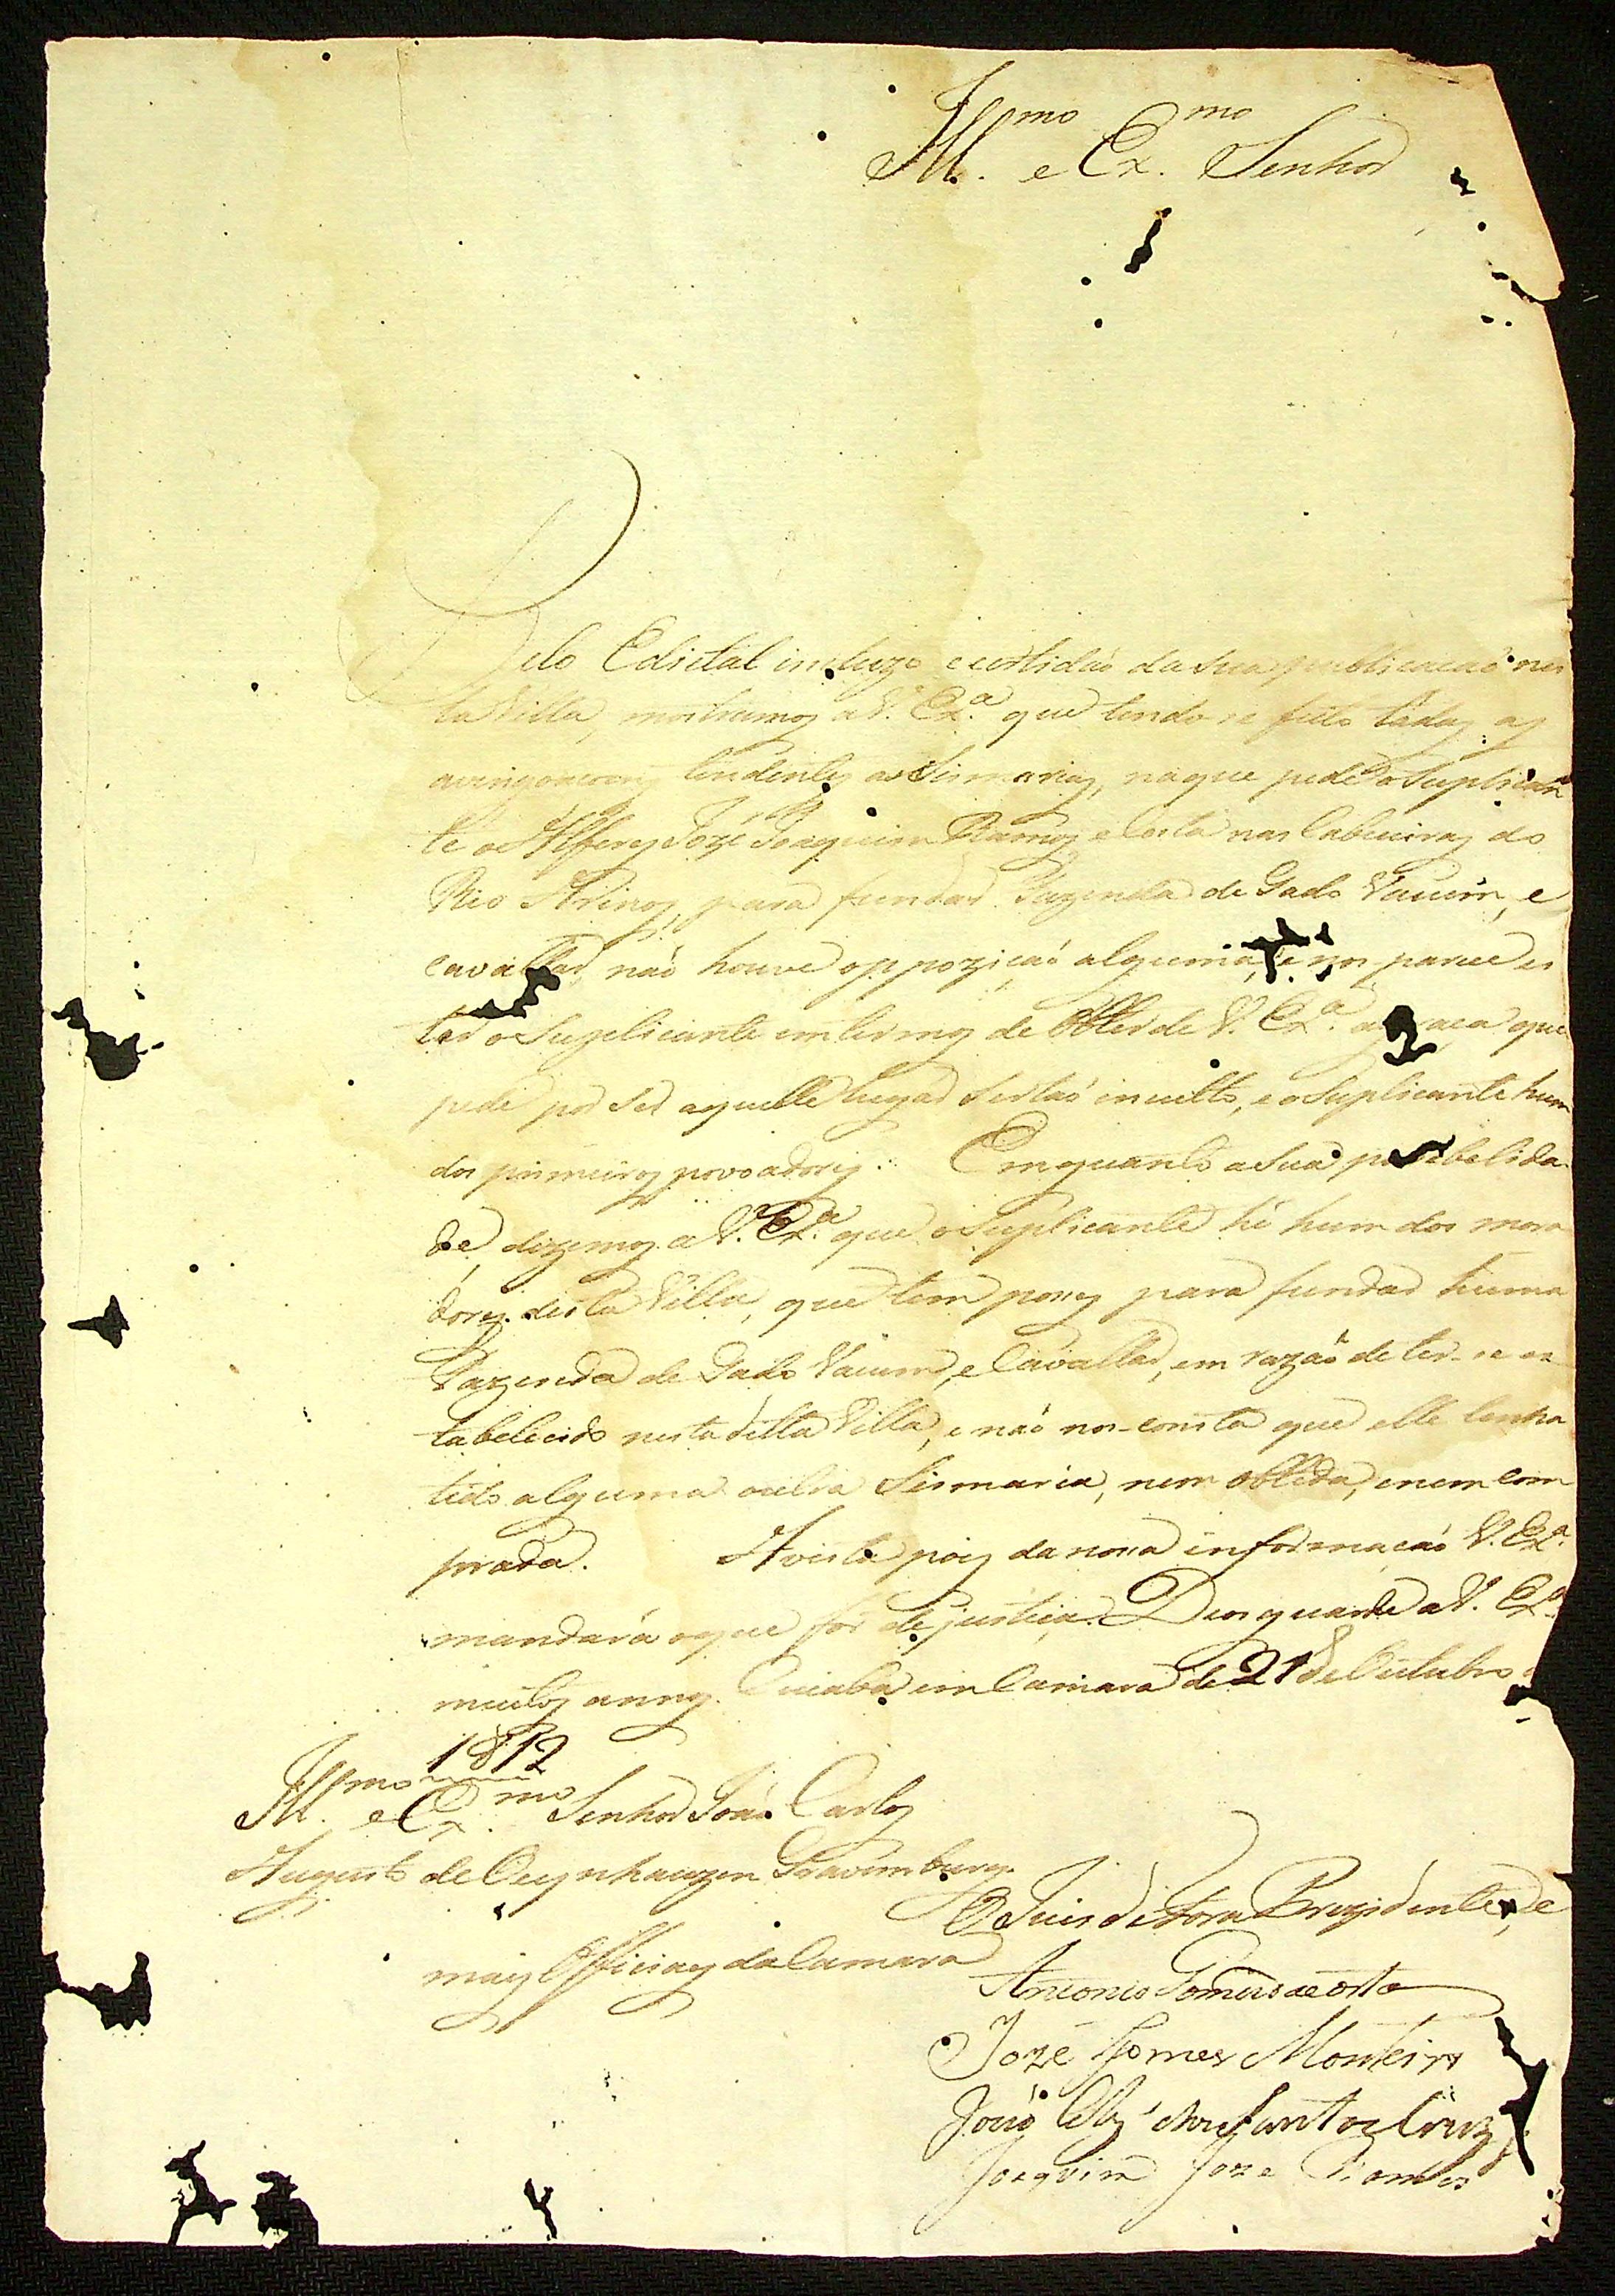 Ill.mo e Ex.mo Senhor
Pelo Edictal incluzo e certidaõ da sua publicacaõ nes
ta Villa, mostramos a V. Ex.a que tendo se feito tádas as
tendentes as Sismarias, naque pede o Suplican
te o Alferes Jozé Joaquim Ramos e Costa nas Cabeceiras do
Rio Arinos, para fundar Fazenda de Gado Vacum, e
cavallar, naõ houve oppoziçaõ alguma, e nos parece es
tar o Suplicante em termos de obter de V. Ex.a a graca que
pede por ser aquelle lugar Sertaõ inculto, e o Suplicante hum
dos primeiros povoadores. Emquanto a Sua possebelida
de, dizemos a V. Ex.a que o Suplicante hé hum dos mora
dores desta Villa, que tem posses para fundar huma
Fazenda de Gado Vacum, e Cavallar, em razaõ de ter-se es
tabelecido nesta ditta Villa, e naõ nos-consta que elle tenha
tido alguma outra Sismaria, nem obtida, e nem com
prada. Avista pois da nossa informacaõ V. Ex.a
mandará o que for de justiça. Deos guarde a V. Ex.a
muitos annos. Cuiabá em Camara de 21 de Outubro
1812
Ill.mo e Ex.mo Senhor Joaõ Carlos
Augusto de Oeynhauzen Gravemburg
O Juis de Fora Prezidente, e
mais Officiaes da Camara
Antonio Gomes da Costa
Jozé Gomes Monteiro
Joaõ dos Santos Cruz
Joaquim Joze Ramos